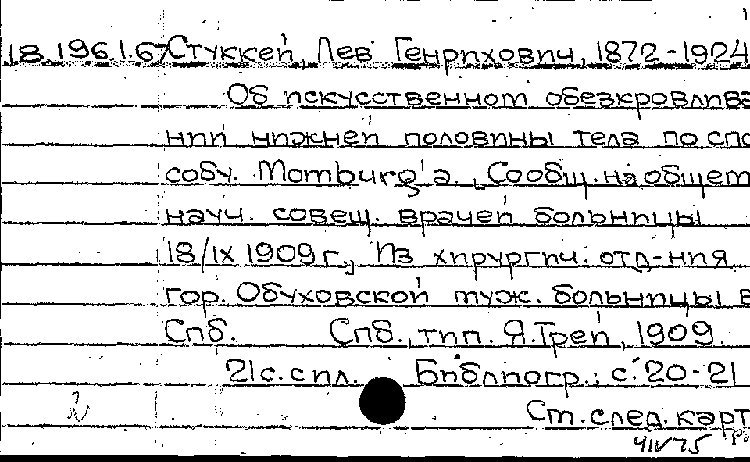 18.196.1.67 Стуккей, Лев Генрихович, 1872-1924
Об искусственном обезкровлива
нии нижней половины тела по спо
собу. Momburg'a. Сообщ. на общем
науч. совещ. врачей больницы
18/IX 1909 г., Из хирургич. отд-ния
гор. Обуховской муж. больницы в
Спб. Спб., тип. Я. Трей, 1909.
21 с. с ил. Библиогр.: с. 20-21
Ст. след. карт